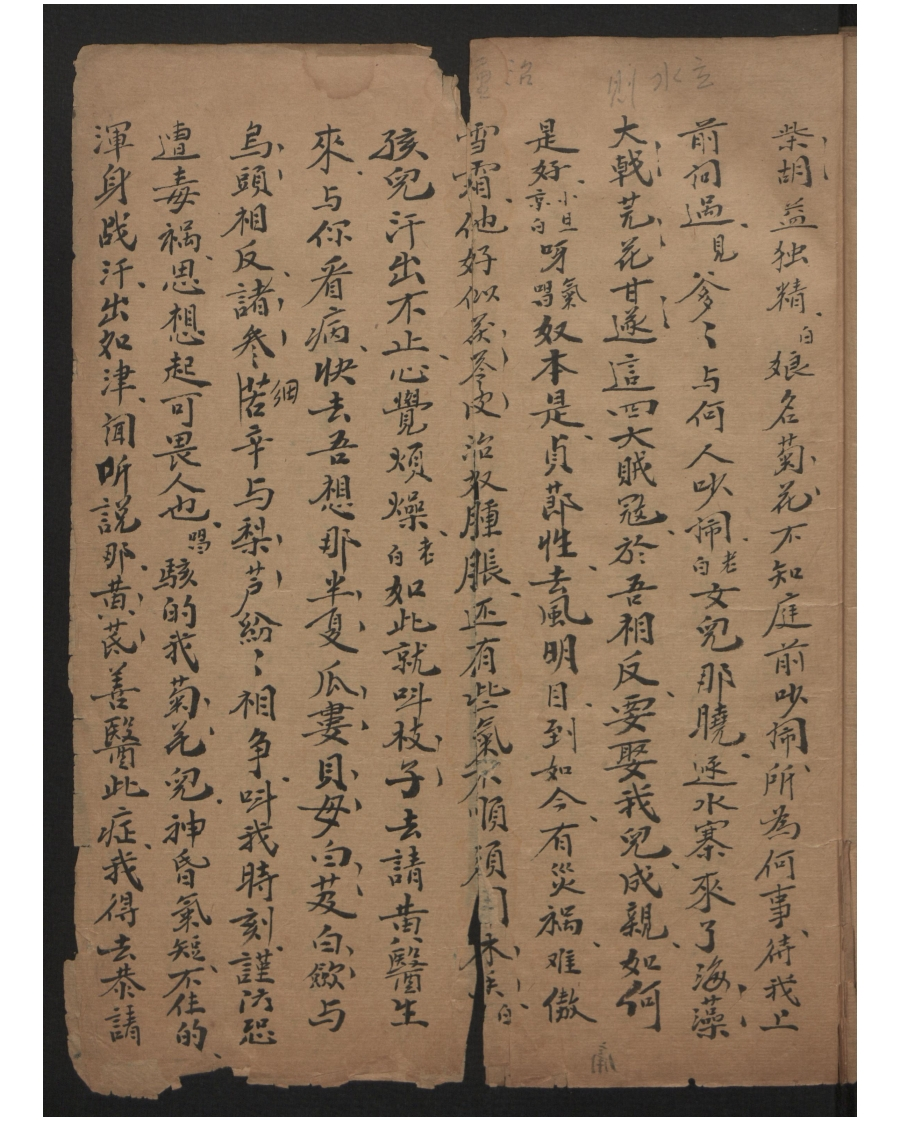 柴胡益独精白娘名菊花不知庭前吵闹所為何事待我上
前问過見爹〻与何人吵闹老白女兒那曉逆水寨來了海藻
大戟芫花甘遂這四大贼寇於吾相反要娶我兒成親如何
是好小旦京白呀氣唱奴本是貞節性去風明目到如今有災禍难傲
雪霜他好似茯苓皮治奴腫脹还有些氣不順須用
孩兒汗出不止心覺煩燥老白如此就呌枝子去請黄醫生
來与你看病快去吾想那半夏瓜蔞貝母白芨白歛与
烏頭相反諸參苦細辛与梨芦紛〻相争呌我時刻謹防恐
遭毒禍思想起可畏人也唱駭的我菊花兒神昏氣短不住的
渾身战汗出如津闻听説那黄芪善醫此症我得去恭請